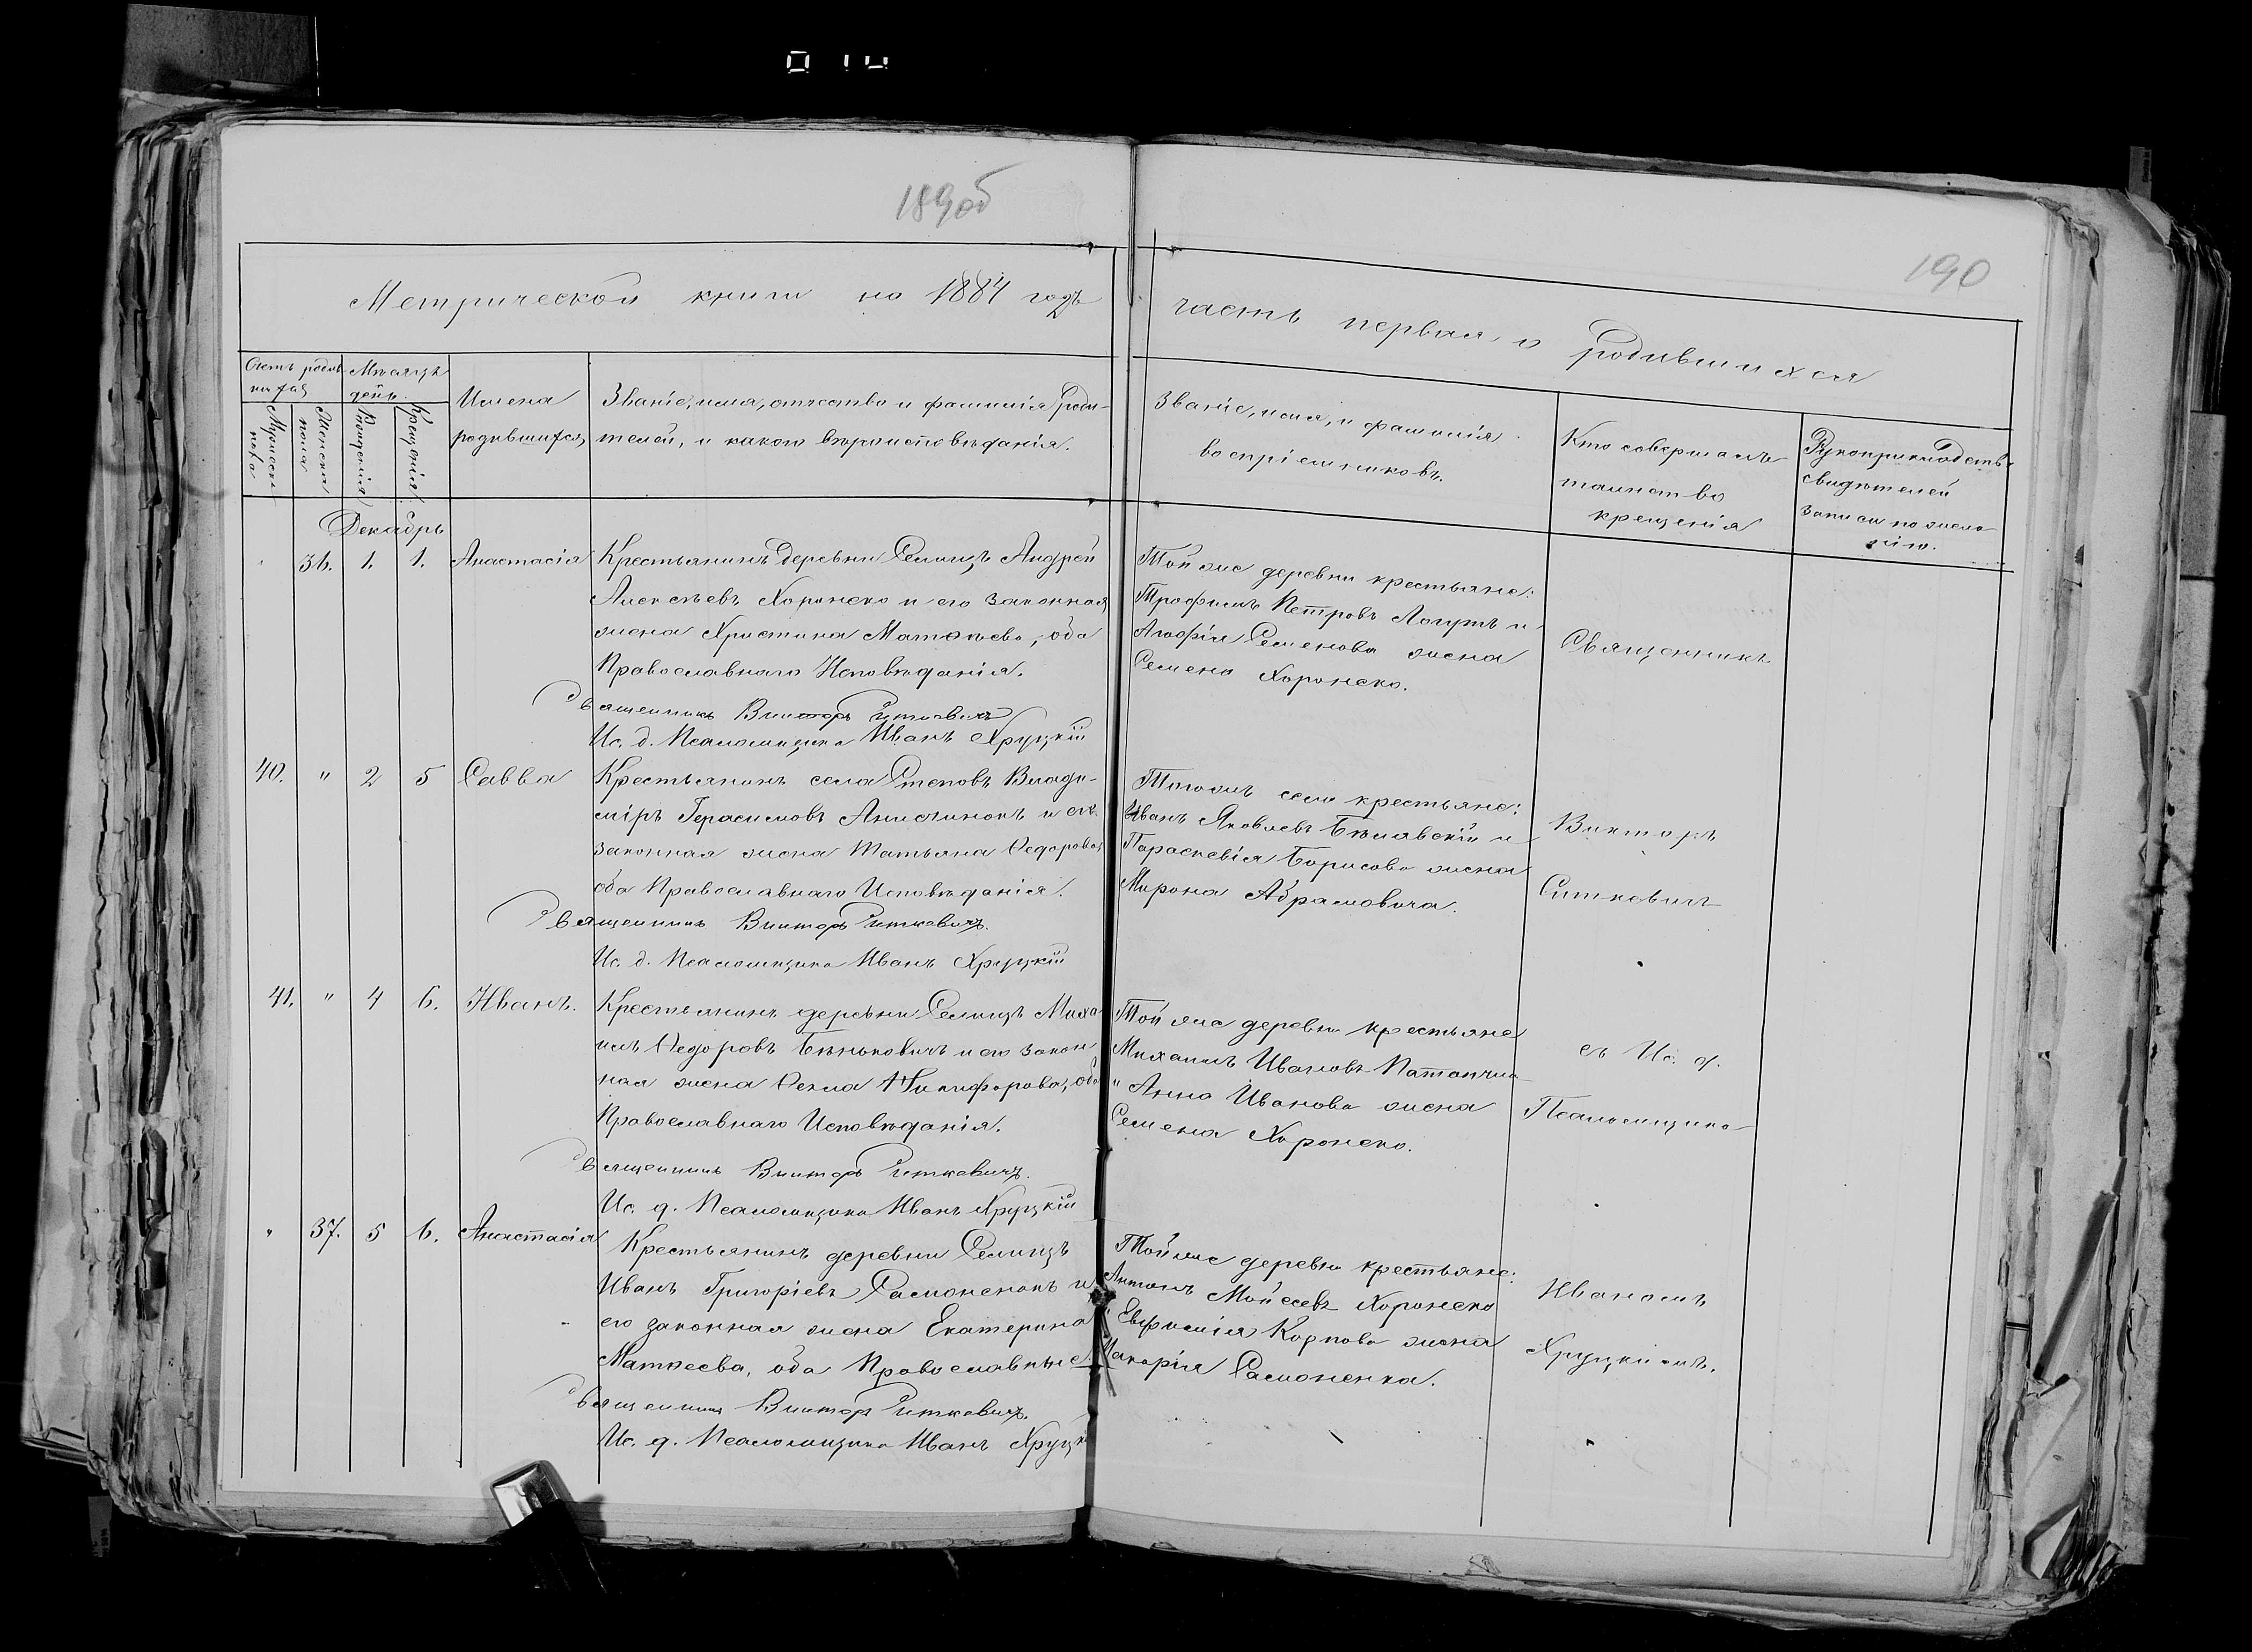 189об
190
Метрической книги на 1884 годъ
часть первая, о родившихся
Счетъ родив-
шихся
Мужеска
пола
Женска
пола
Мѣсяцъ
день.
Рожденія
Крещенія
Имена
родившихся
Званіе, имя, отчество и фамилія роди-
телей, и какого вѣроисповѣданія.
Званіе, имя, и фамилія
воспріемниковъ.
Кто совершалъ
таинство
крещенія
Рукоприкладство
свидѣтелей
записи по жела-
нію.
Декабрь
36. 1. 1. Анастасія
Крестьянинъ деревни Селищъ Андрей
Алексѣевъ Хоронеко и его законная
жена Христина Матѳѣева, оба
Православнаго Исповѣданія.
Священникъ Викторъ Ситкевичъ
Ис. д. Псаломщика Иванъ Хруцкій
Той же деревни крестьяне:
Трофимъ Петровъ и
Агафія Семенова жена
Семена Хоронеко.
40. " 2 5 Савва
Крестьянинъ села Степовъ Влади-
міръ Герасимовъ и его
законная жена Татьяна Ѳедорова,
оба Православнаго Исповѣданія.
Священникъ Викторъ Ситкевичъ.
Ис. д. Псаломщика Иванъ Хруцкій
Тогожъ села крестьяне:
Иванъ Яковлевъ Бѣлявскій и
Параскевія Борисова жена
Мирона Абрамовича.
41. " 4 6. Иванъ.
Крестьянинъ деревни Селищъ Миха-
илъ Ѳедоровъ Бѣньковичъ и его закон
ная жена Ѳекла Никифорова, оба
Православнаго Исповѣданія.
Священникъ Викторъ Ситкевичъ.
Ис. д. Псаломщика Иванъ Хруцкій
Той же деревни крестьяне
Михаилъ Ивановъ
" Анна Иванова жена
Семена Хоронеко.
" 37. 5 6. Анастасія
Крестьянинъ деревни Селищъ
Иванъ Григоріевъ Самоненокъ и
его законная жена Екатерина
Матвеева, оба Православные.
Священникъ Викторъ Ситкевичъ.
Ис. д. Псаломщика Иванъ Хруцк
Той же деревни крестьяне:
Антонъ Мойсеевъ Хоронеко
" Евфимія Карпова жена
Макарія Самоненка.
Священникъ
Викторъ
Ситкевичъ
съ Ис. д.
Псаломщика
Иваномъ
Хруцкимъ.